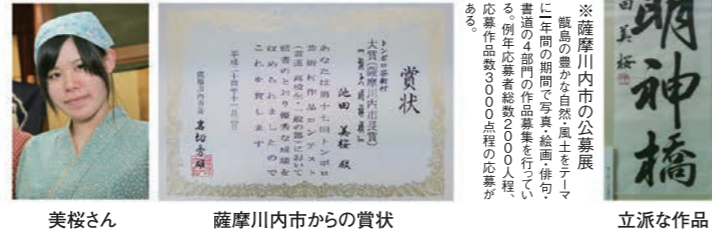 賞状
トンボロ芸術村
大賞(薩摩川内市長賞)
池田 美桜 殿
あなたは第十七回トンボロ
芸術村作品コンテスト
(書道 高校生・一般の部)において
頭書のとおり優秀な成績を
収められましたので
これを賞します
平成二十四年十一月
薩摩川内市長 岩切秀雄
※薩摩川内市の公募展
甑島の豊かな自然・風土をテーマ
に1年間の期間で写真・絵画・俳句・
書道の4部門の作品募集を行ってい
る。例年応募者総数2000人程、
応募作品数3000点程の応募が
ある。
明神橋
田美桜
美桜さん
薩摩川内市からの賞状
立派な作品